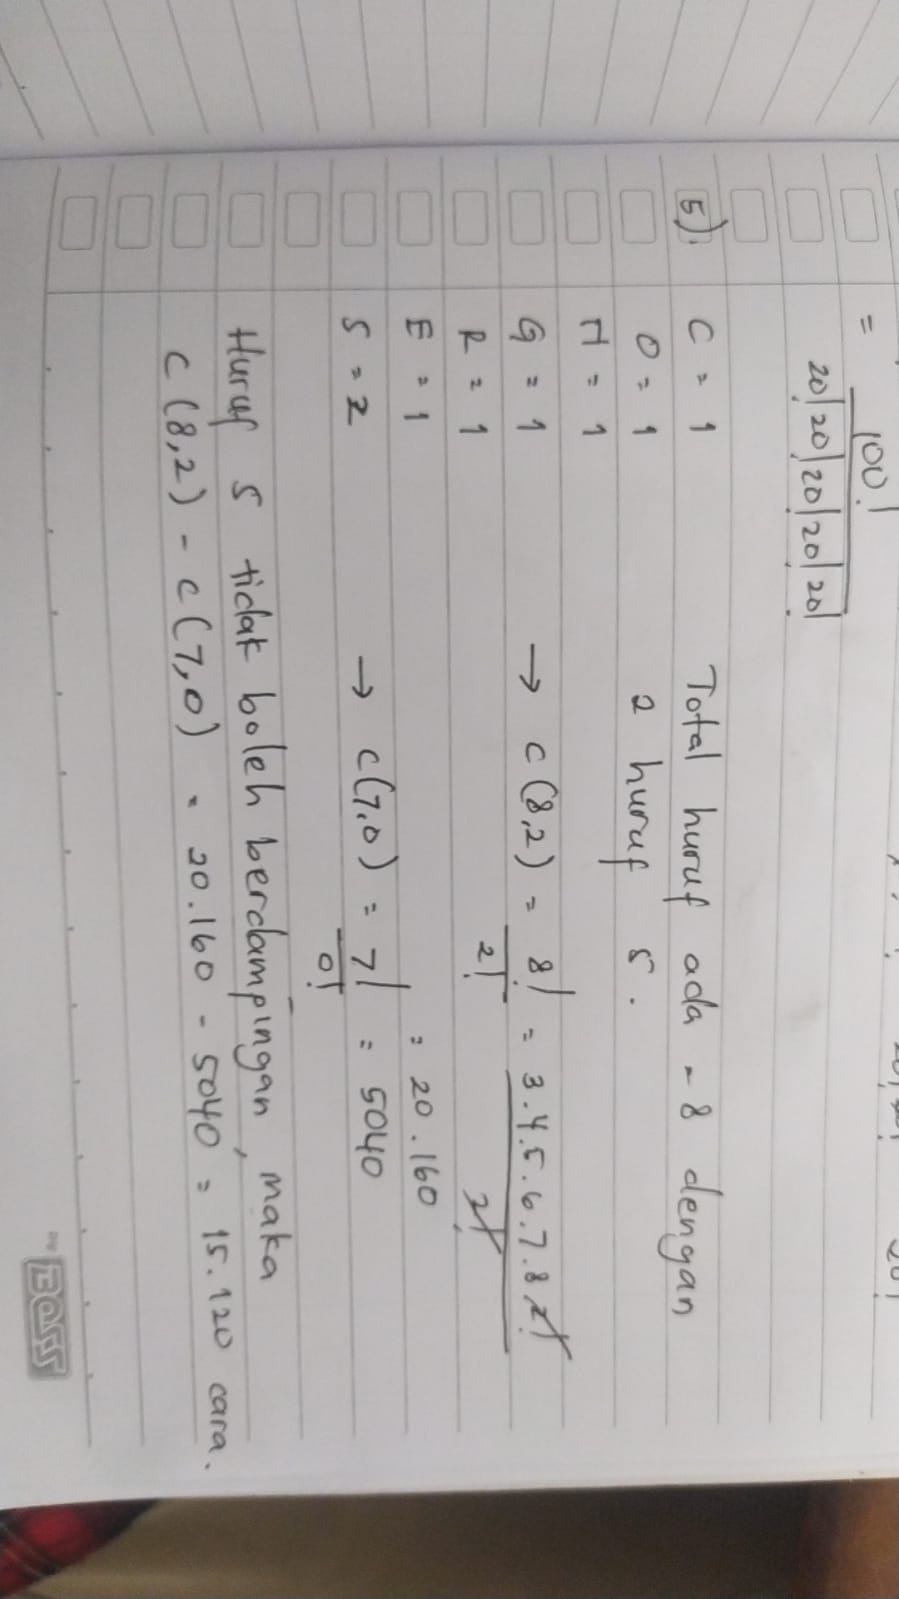 = 100!
20! 20! 20! 20! 20!
5). C = 1 Total huruf ada = 8 dengan
O = 1 2 huruf S.
N = 1
G = 1 → C (8,2) = 8! / 2! = 3.4.5.6.7.8 2! / 2!
R = 1
E = 1 = 20.160
S = 2 → C(7,0) = 7! / 0! = 5040
Huruf S tidak boleh berdampingan, maka
C (8,2) - C (7,0) = 20.160 - 5040 = 15.120 cara.
BOSS